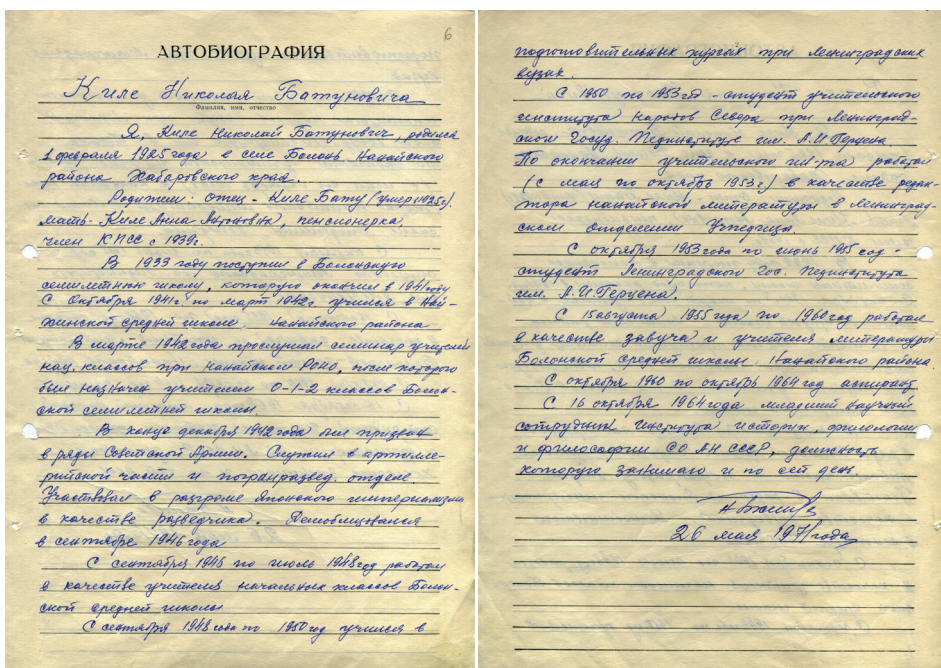 6
АВТОБИОГРАФИЯ
Киле Николая Батуновича
Фамилия, имя, отчество
Я, Киле Николай Батунович, родился
1 февраля 1925 года в селе Болонь Нанайского
района Хабаровского края.
Родители: отец - Киле Бату (умер в 1925 г.),
мать - Киле Анна Антоновна, пенсионерка,
член КПСС с 1939 г.
В 1933 году поступил в Болонскую
семилетнюю школу, которую окончил в 1941 году
С октября 1941 г. по март 1942 г. учился в Най-
хинской средней школе Нанайского района
В марте 1942 года прослушал семинар учителей
нац. классов при Нанайском РОНО, после которого
был назначен учителем 0-1-2 классов Болон-
ской семилетней школы.
В конце декабря 1942 года был призван
в ряды Советской Армии. Служил в артилле-
рийской части и погранразвед. отделе
Участвовал в разгроме японского империализма
в качестве разведчика. Демобилизовался
в сентябре 1946 года
С сентября 1946 по июль 1948 год работал
в качестве учителя начальных классов Болон-
ской средней школы
С сентября 1948 года по 1950 год учился в
подготовительных курсах при Ленинградских
вузах.
С 1950 по 1953 год - студент учительского
института народов Севера при Ленинград-
ском Госуд. Пединституте им. А.И Герцена
По окончании учительского ин-та работал
(с мая по октябрь 1953 г) в качестве редак-
тора нанайской литературы в Ленинград-
ском отделении Учпедгиза.
С октября 1953 года по июнь 1955 год -
студент Ленинградского Гос. Пединститута
им. А.И. Герцена.
С 15 августа 1955 года по 1960 год работал
в качестве завуча и учителя литературы
Болонской средней школы, Нанайского района
С октября 1960 по октябрь 1964 год аспирант
С 16 октября 1964 года младший научный
сотрудник Института истории, филологии
и философии СО АН СССР, должность
которую занимаю и по сей день.
26 мая 1971 года